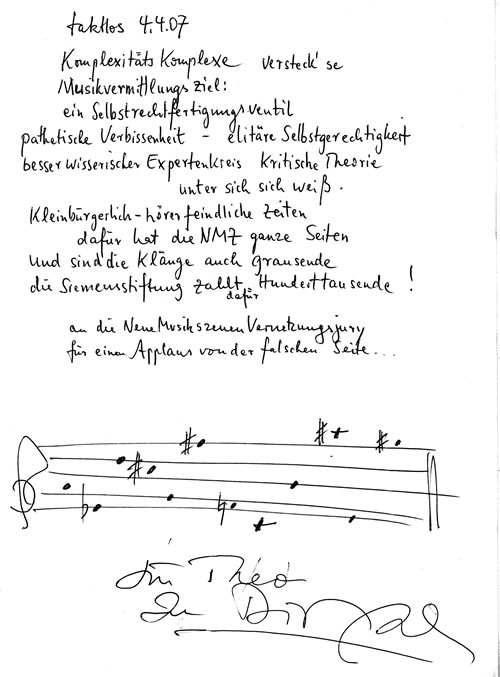 taktlos 4.4.07
Komplexitäts Komplexe versteck' se
Musikvermittlungs ziel:
ein Selbstrechtfertigungsventil
pathetische Verbissenheit - elitäre Selbstgerechtigkeit
besser wisserischer Expertenkreis Kritische Theorie
unter sich sich weiß.
Kleinbürgerlich-hörerfeindliche Zeiten
dafür hat die NMZ ganze Seiten
und sind die Klänge auch grausende
die Siemensstiftung zahlt dafür Hunderttausende!
an die Neue Musikszenen Vernetzungsjury
für einen Applaus von der falschen Seite...
für Theo